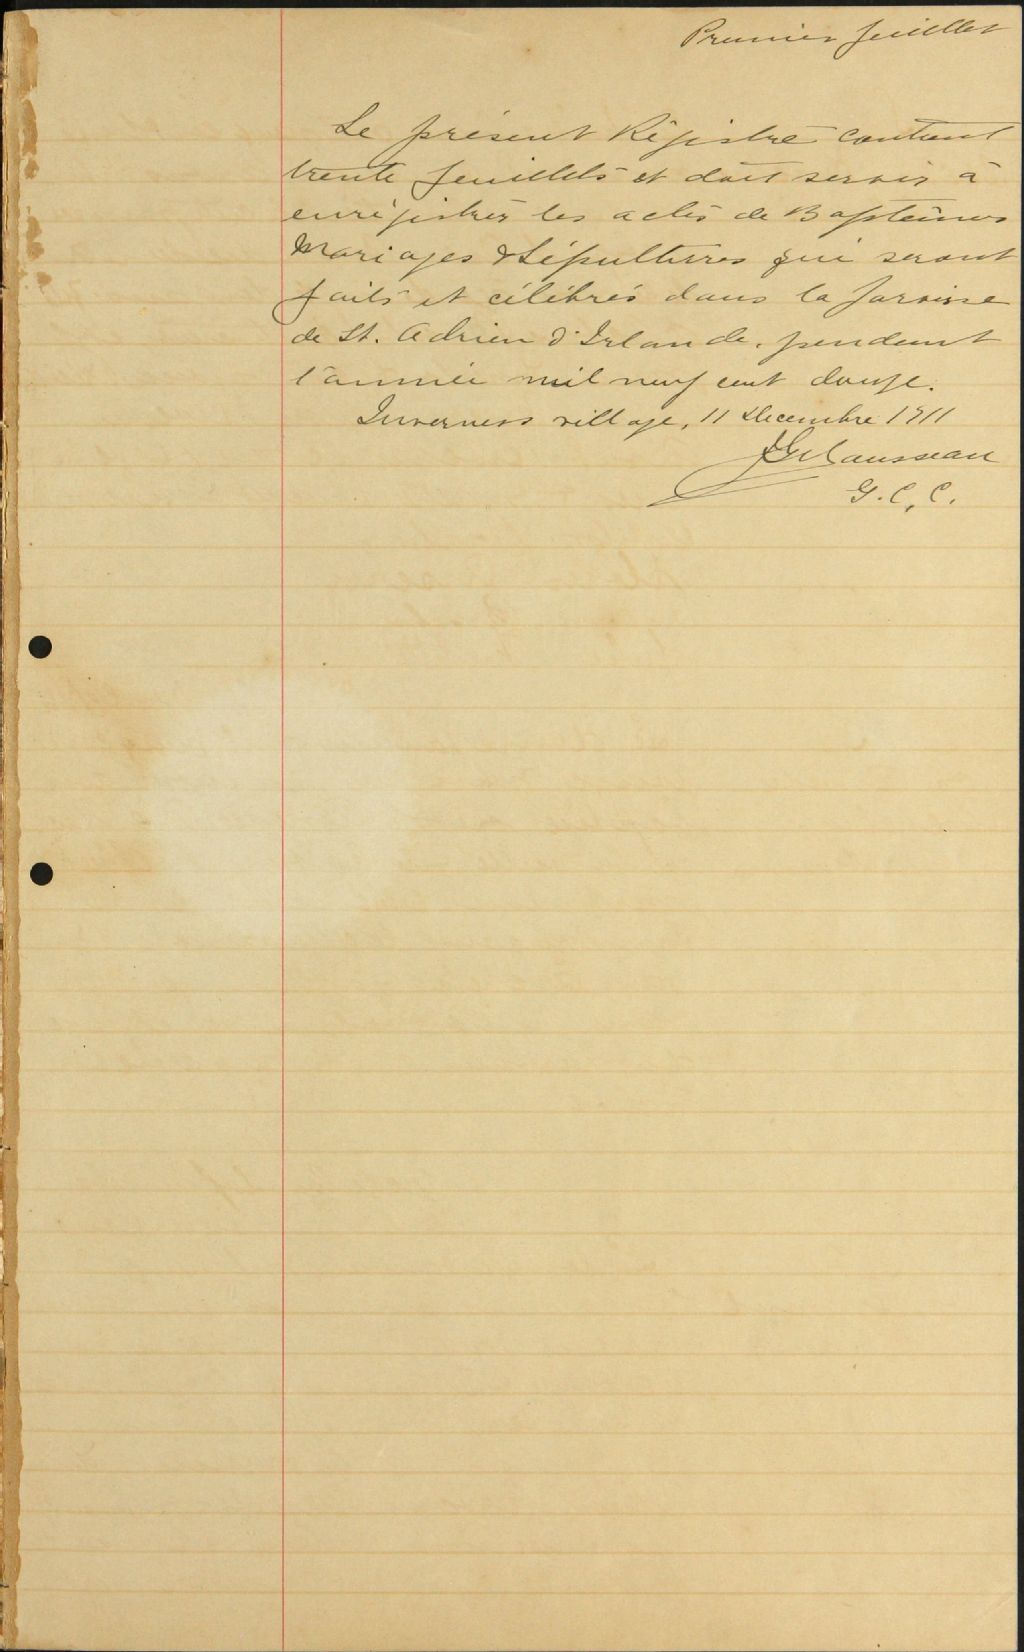 Premier feuillet
Le présent Régistre contient
trente feuillets et doit servir à
enrégistrer les actes de Baptêmes
Mariages & Sépultures qui seront
faits et célébrés dans la paroisse
de St. Adrien d'Irlande, pendant
l'année mil neuf cent douze.
Inverness village, 11 Decembre 1911
Rousseau
G. C. C.